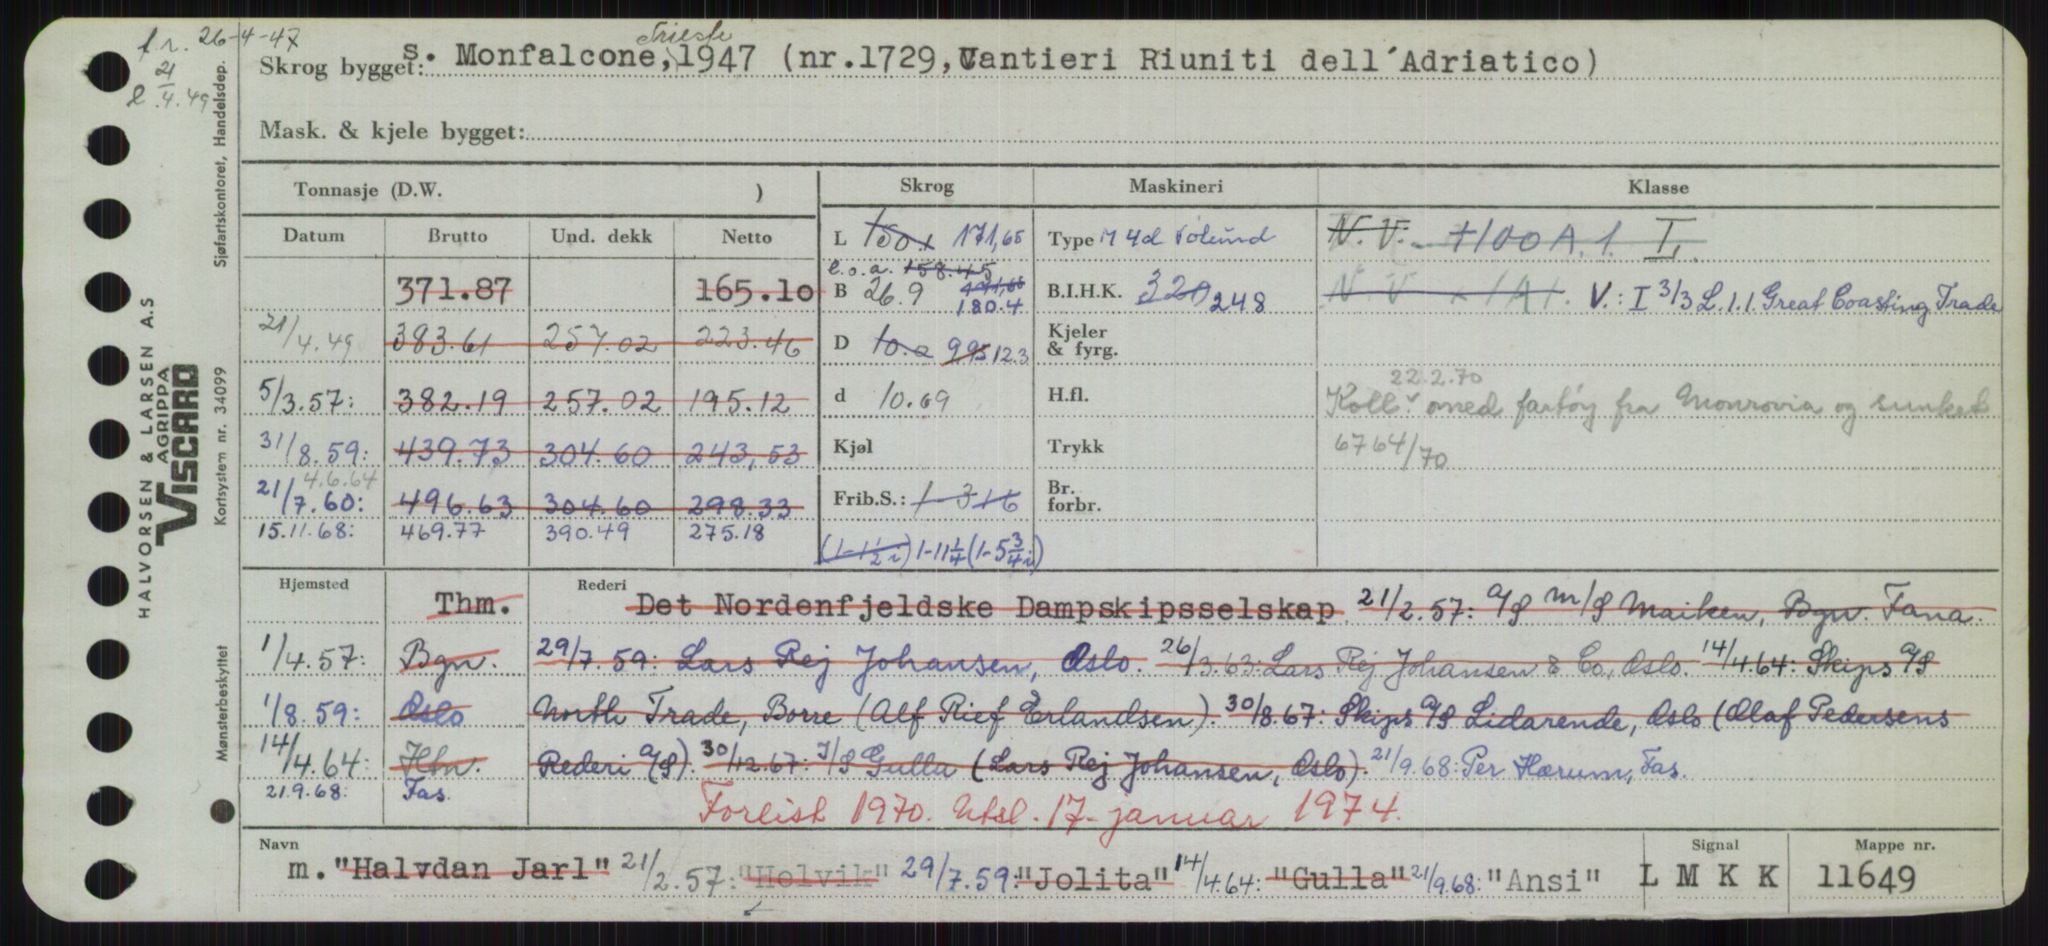 f.r. 26-4-47
21
l /4.49
Skrog bygget: s. Monfalcone, Trieste 1947 (nr.1729, Cantieri Riuniti dell´Adriatico)
Mask. & kjele bygget:
Tonnasje (D.W. )
Skrog Maskineri Klasse
Datum Brutto Und. dekk Netto
L 150.1 171,65 Type M 4d Völund N.V. +100A.1. I.
l.o.a. 158.45
371.87 165.10 B 26.9 180.4 B.I.H.K. 320 248 N.V. +1A1. V.: I 3/3 L.1.1. Great Coasting Trade
21/4.49 383.61 257.02 223.46 D 10.2 995 12.3 Kjeler & fyrg.
5/3.57: 382.19 257.02 195.12 d 10.69 H.fl. Koll. 22.2.70 med fartøy fra Monrovia og sunket
31/8.59: 439.73 304.60 243,53 Kjøl Trykk 6764/70
4.6.64
21/7.60: 496.63 304.60 298.33 Frib.S.: 1-3 1/6 Br. forbr.
15.11.68: 469.77 390.49 275.18 (1-1 1/2 i) 1-11 1/4 (1-5 3/4 i)
Hjemsted Rederi
Thm. Det Nordenfjeldske Dampskipsselskap 21/2.57: A/S M/S Maiken, Bgn. Fana.
1/4.57: Bgn. 29/7.59: Lars Rej Johansen, Oslo. 26/3.63: Lars Rej Johansen & Co., Oslo. 14/4.64: Skips A/S
1/8.59: Oslo North Trade, Borre (Alf Rief Erlandsen). 30/8.67: Skips A/S Lidarende, Oslo (Olaf Pedersens
14/4.64: Hbn. Rederi A/S). 30/12.67: I/S Gulla (Lars Rej Johansen, Oslo). 21/9.68: Per Hærum, Fas.
21.9.68: Fas.
Forlist 1970. Utsl. 17. januar 1974.
Navn Signal Mappe nr.
m. "Halvdan Jarl" 21/2.57: "Holvik" 29/7.59: "Jolita" 14/4.64: "Gulla" 21/9.68: "Ansi" L M K K 11649
Sjøfartskontoret, Handelsdep.
Kortsystem nr. 34099
Mønsterbeskyttet
HALVORSEN & LARSEN A.S
AGRIPPA
VISCARD